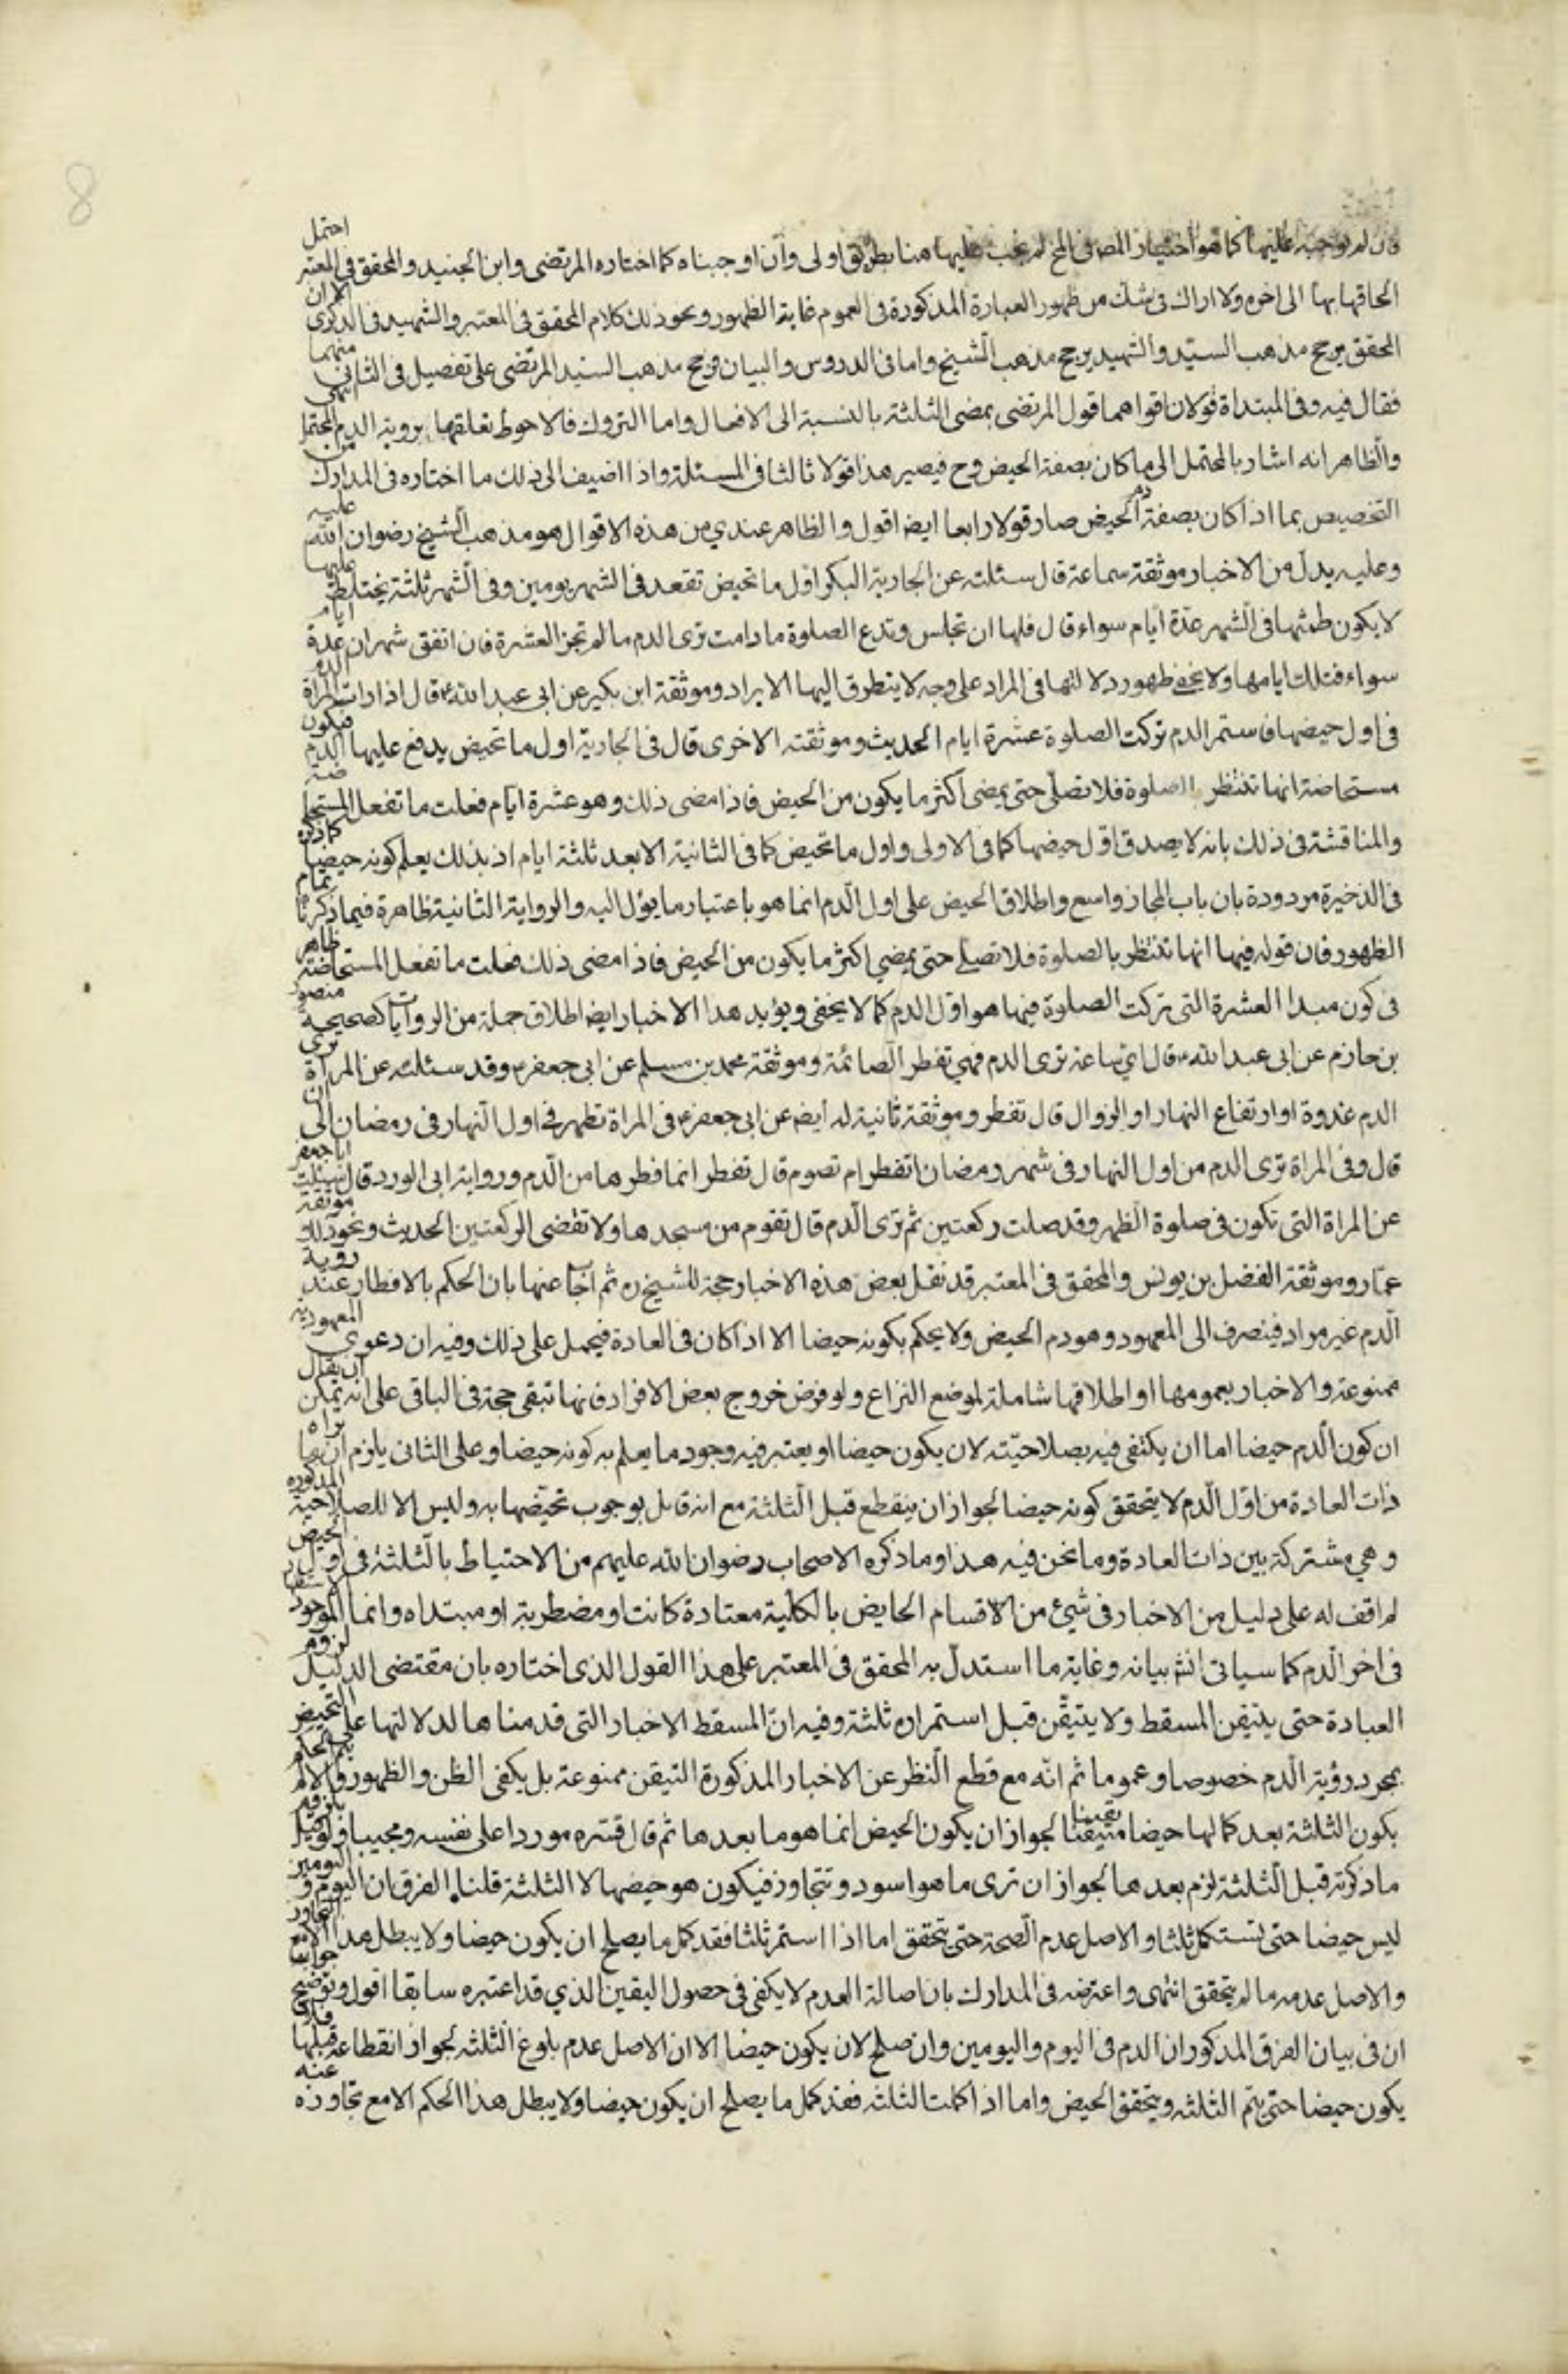 فان لم نوجبه عليها كما هو اختيار المصـ في المخ لم يجب عليها هنا بطريق اولى وان اوجبناه كما اختاره المرتضى وابن الجنيد والمحقق في المعتبر احتمل
الحاقها بها الى اخره ولا اراك في شك من ظهور العبارة المذكورة في العموم غاية الظهور ونحو ذلك كلام المحقق في المعتبر والشهيد في الذكرى الا ان
المحقق يرجح مذهب السيّد والشهيد يرجح مذهب الشيخ واما في الدروس والبيان فرجح مذهب السيّد المرتضى على تفصيل في الثاني منهما
فقال فيه وفي المبتداة قولان اقواهما قول المرتضى بمضى الثلثة بالنسبة الى الافعال واما التروك فالاحوط تعلقها بروية الدم المحتمل انتهى
والظاهر انه اشار بالمحتمل الى ما كان بصفة الحيض وح فيصير هذا قولا ثالثا في المسئلة واذا اضيف الى ذلك ما اختاره في المدارك من
التخصيص بما اذا كان بصفة دم الحيض صار قولا رابعا ايضا اقول والظاهر عندي من هذه الاقوال هو مذهب الشيخ رضوان الله عليه
وعليه يدل من الاخبار موثقة سماعة قال سئلته عن الجارية البكر اول ما تحيض تقعد في الشهر يومين وفي الشهر ثلثة يختلط عليها
لا يكون طمثها في الشهر عدّة ايام سواء قال فلها ان تجلس وتدع الصلوة ما دامت ترى الدم ما لم تجز العشرة فان اتفق شهران عدة ايام
سواء فتلك ايامها ولا يخفى ظهور دلالتها في المراد على وجه لا يتطرق اليها الايراد وموثقة ابن بكير عن ابي عبد الله ع قال اذا رات المراة الدم
في اول حيضها فاستمر الدم تركت الصلوة عشرة ايام الحديث وموثقته الاخرى قال في الجارية اول ما تحيض يدفع عليها الدم فتكون
مستحاضة انها تنتظر بالصلوة فلا تصلى حتى يمضى اكثر ما يكون من الحيض فاذا مضى ذلك وهو عشرة ايام فعلت ما تفعل المستحاضة
والمناقشة في ذلك بانه لا يصدق اول حيضها كما في الاولى واول ما تحيض كما في الثانية الا بعد ثلثة ايام اذ بذلك يعلم كونه حيضا كما ذكره
في الذخيرة مردودة بان باب المجاز واسع واطلاق الحيض على اول الدم انما هو باعتبار ما يؤل اليه والرواية الثانية ظاهرة فيما ذكرنا تمام
الظهور فان قوله فيها انها تنتظر بالصلوة فلا تصلي حتى يمضي اكثر ما يكون من الحيض فاذا مضى ذلك فعلت ما تفعل المستحاضة ظاهر
في كون مبدا العشرة التي تركت الصلوة فيها هو اوّل الدم كما لا يخفى ويؤيد هذا الاخبار ايضا اطلاق جملة من الروايات كصحيحة منصور
بن حازم عن ابي عبد الله ع قال اي ساعة ترى الدم فهي تفطر الصائمة وموثقة محمد بن مسلم عن ابي جعفر ع وقد سئلته عن المراة ترى
الدم غدوة او ارتفاع النهار او الزوال قال تفطر وموثقة ثانية له ايضا عن ابي جعفر ع في المراة تطهر في اول النهار في رمضان الى ان
قال وفي المراة ترى الدم من اول النهار في شهر رمضان اتفطر ام تصوم قال تفطر انما فطرها من الدم ورواية ابي الورد قال سئلت ابا جعفر
عن المراة التي تكون في صلوة الظهر وقد صلت ركعتين ثم ترى الدم قال تقوم من مسجدها ولا تقضى الركعتين الحديث ونحو ذلك موثقة
عمّار وموثقة الفضل بن يونس والمحقق في المعتبر قد نقل بعض هذه الاخبار حجة للشيخ ره ثم اجاب عنها بان الحكم بالافطار عند روية
الدم غير مراد فينصرف الى المعهود وهو دم الحيض ولا يحكم بكونه حيضا الا اذا كان في العادة فيحمل على ذلك وفيه ان دعوى المعهودية
ممنوعة والاخبار بعمومها او اطلاقها شاملة لموضع النزاع ولو فرض خروج بعض الافراد فانها تبقى حجة في الباقي على انه يمكن ان يقال
ان كون الدم حيضا اما ان يكتفى فيه بصلاحيّته لان يكون حيضا او يعتبر فيه وجود ما يعلم به كونه حيضا وعلى الثاني يلزم ان ما تراه
ذات العادة من اوّل الدم لا يتحقق كونه حيضا لجواز ان ينقطع قبل الثلثة مع انه قائل بوجوب تحيّضها به وليس الا للصلاحية المذكورة
وهي مشتركة بين ذات العادة وما نحن فيه هذا وما ذكره الاصحاب رضوان الله عليهم من الاحتياط بالثلثة في اول الحيض
لم اقف له على دليل من الاخبار في شيئ من الاقسام الحايض بالكلية معتادة كانت او مضطربة او مبتداه وانما الموجود
في اخر الدم كما سياتي انشـ بيانه وغاية ما استدلّ به المحقق في المعتبر على هذا القول الذى اختاره بان مقتضى الدليل لزوم
العبادة حتى يتيقن المسقط ولا يتيقّن قبل استمراره ثلثة وفيه انّ المسقط الاخبار التي قدمناها لدلالتها على التحيض
بمجرد رؤية الدم خصوصا وعموما ثم انّه مع قطع النظر عن الاخبار المذكورة التيقن ممنوعة بل يكفى الظن والظهور والا لم
يكون الثلثة بعد كمالها حيضا متيقّنا يقينا لجواز ان يكون الحيض انما هو ما بعدها ثم قال قسره موردا على نفسه ومجيبا ولو قيل
ما ذكرته قبل الثلثة لزم بعدها لجواز ان ترى ما هو اسود وتتجاوز فيكون هو حيضها لا الثلثة قلنا الفرق ان اليوم و اليومين
ليس حيضا حتى تستكمل ثلثا والاصل عدم الصحة حتى يتحقق اما اذا استمر ثلثا فقد كمل ما يصلح ان يكون حيضا ولا يبطل هذا الا مع التجاوز
والاصل عدمه ما لم يتحقق انتهى واعترضه في المدارك بان اصالة العدم لا يكفى في حصول اليقين الذي قد اعتبره سابقا اقول وتوضيح
ان في بيان الفرق المذكور ان الدم في اليوم واليومين وان صلح لان يكون حيضا الا ان الاصل عدم بلوغ الثلثه لجواز انقطاعه قبلها فلا
يكون حيضا حتى يتم الثلثه ويتحقق الحيض واما اذا كملت الثلثه فقد كمل ما يصلح ان يكون حيضا ولا يبطل هذا الحكم الا مع تجاوزه عنه